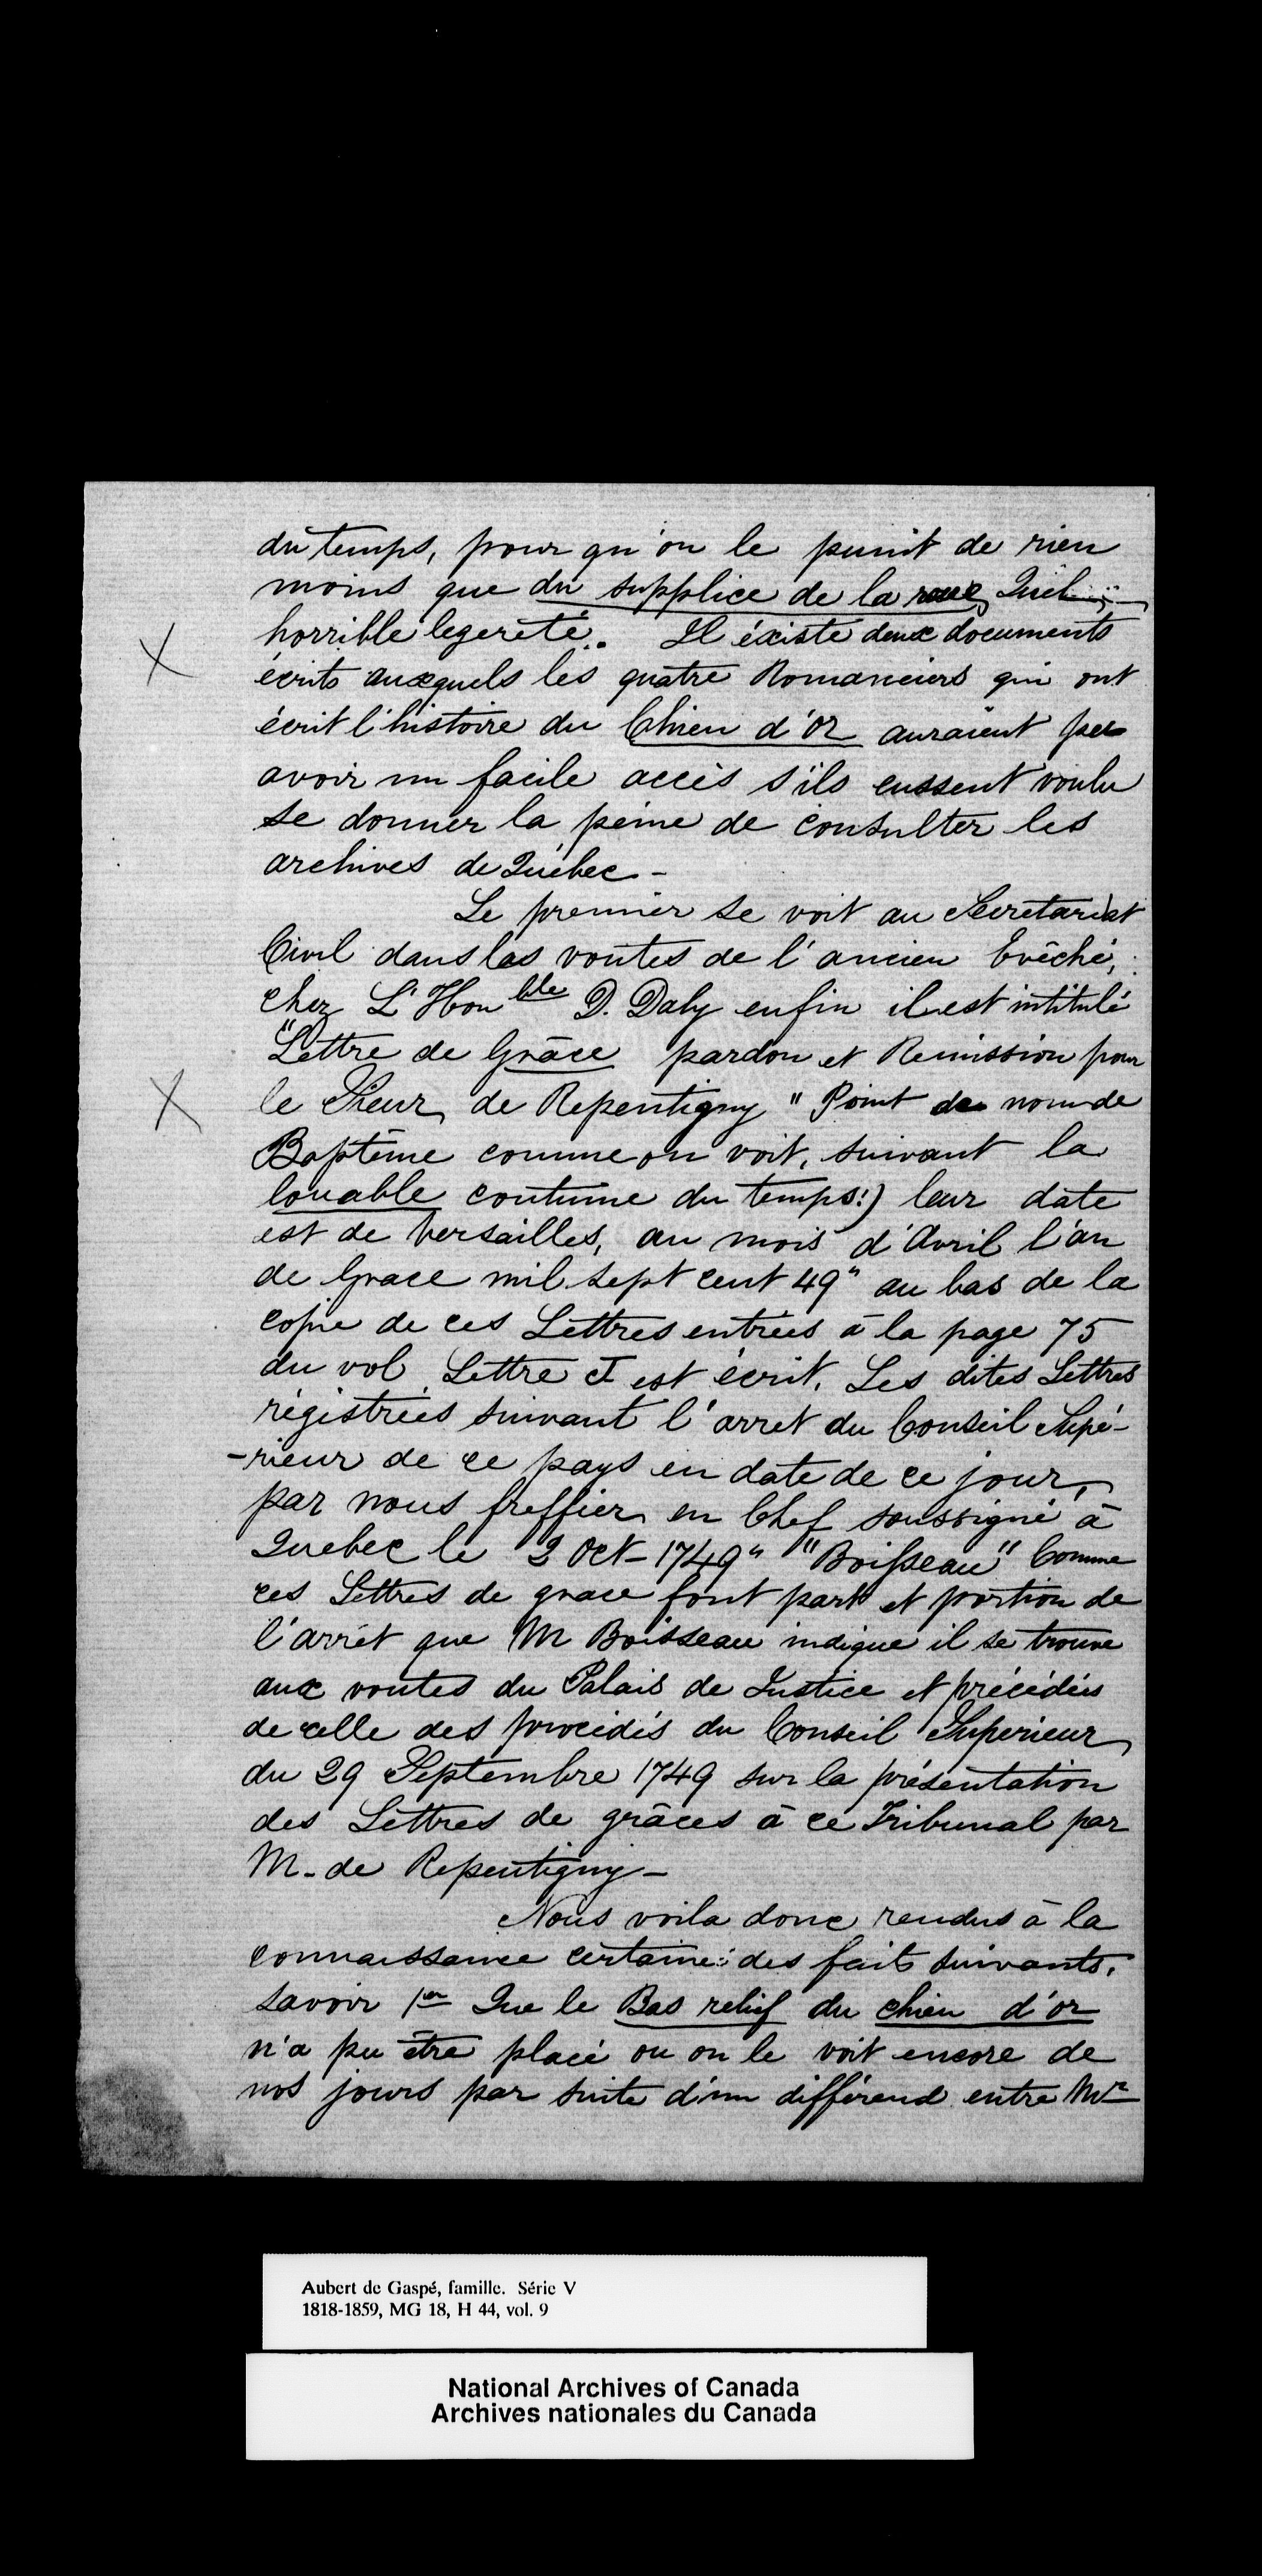 du temps, pour qu'on le punit de rien
moins que du supplice de la roue, Quel
horrible legereté. Il éxiste deux documents
écrits auxquels les quatre Romanciers qui ont
écrit l'histoire du Chien d'or auraient pu
avoir un facile accès s'ils eussent voulu
se donner la peine de consulter les
archives de Québec -
Le premier se voit au Secretariat
Civil dans les voutes de l'ancien Evêché,
chez L'Honble D. Daly enfin il est intitulé
"Lettre de Grâce pardon et Remission pour
le Sieur de Repentigny" Point de nom de
Baptême comme on voit, suivant la
louable coutume du temps!) leur date
est de Versailles, au mois d'Avril l'an
de Grace mil sept cent 49" au bas de la
copie de ces Lettres entrées à la page 75
du vol. Lettre J est écrit. Les dites Lettres
régistrées suivant l'arret du Conseil Supé-
-rieur de ce pays en date de ce jour,
par nous Greffier en Chef soussigné à
Quebec le 2 Oct - 1749" "Boisseau" Comme
ces Lettres de grace font part et portion de
l'arrêt que M Boisseau indique il se trouve
aux voutes du Palais de Justice et précédées
de celle des procédés du Conseil Superieur
du 29 Septembre 1749 sur la présentation
des Lettres de grâces à ce Tribunal par
M. de Repentigny -
Nous voila donc rendus à la
connaissance certaine des faits suivants,
savoir 1er Que le Bas relief du chien d'or
n'a pu être placé ou on le voit encore de
nos jours par suite d'un différend entre Mr
Aubert de Gaspé, famille. Série V
1818-1859, MG 18, H 44, vol. 9
National Archives of Canada
Archives nationales du Canada